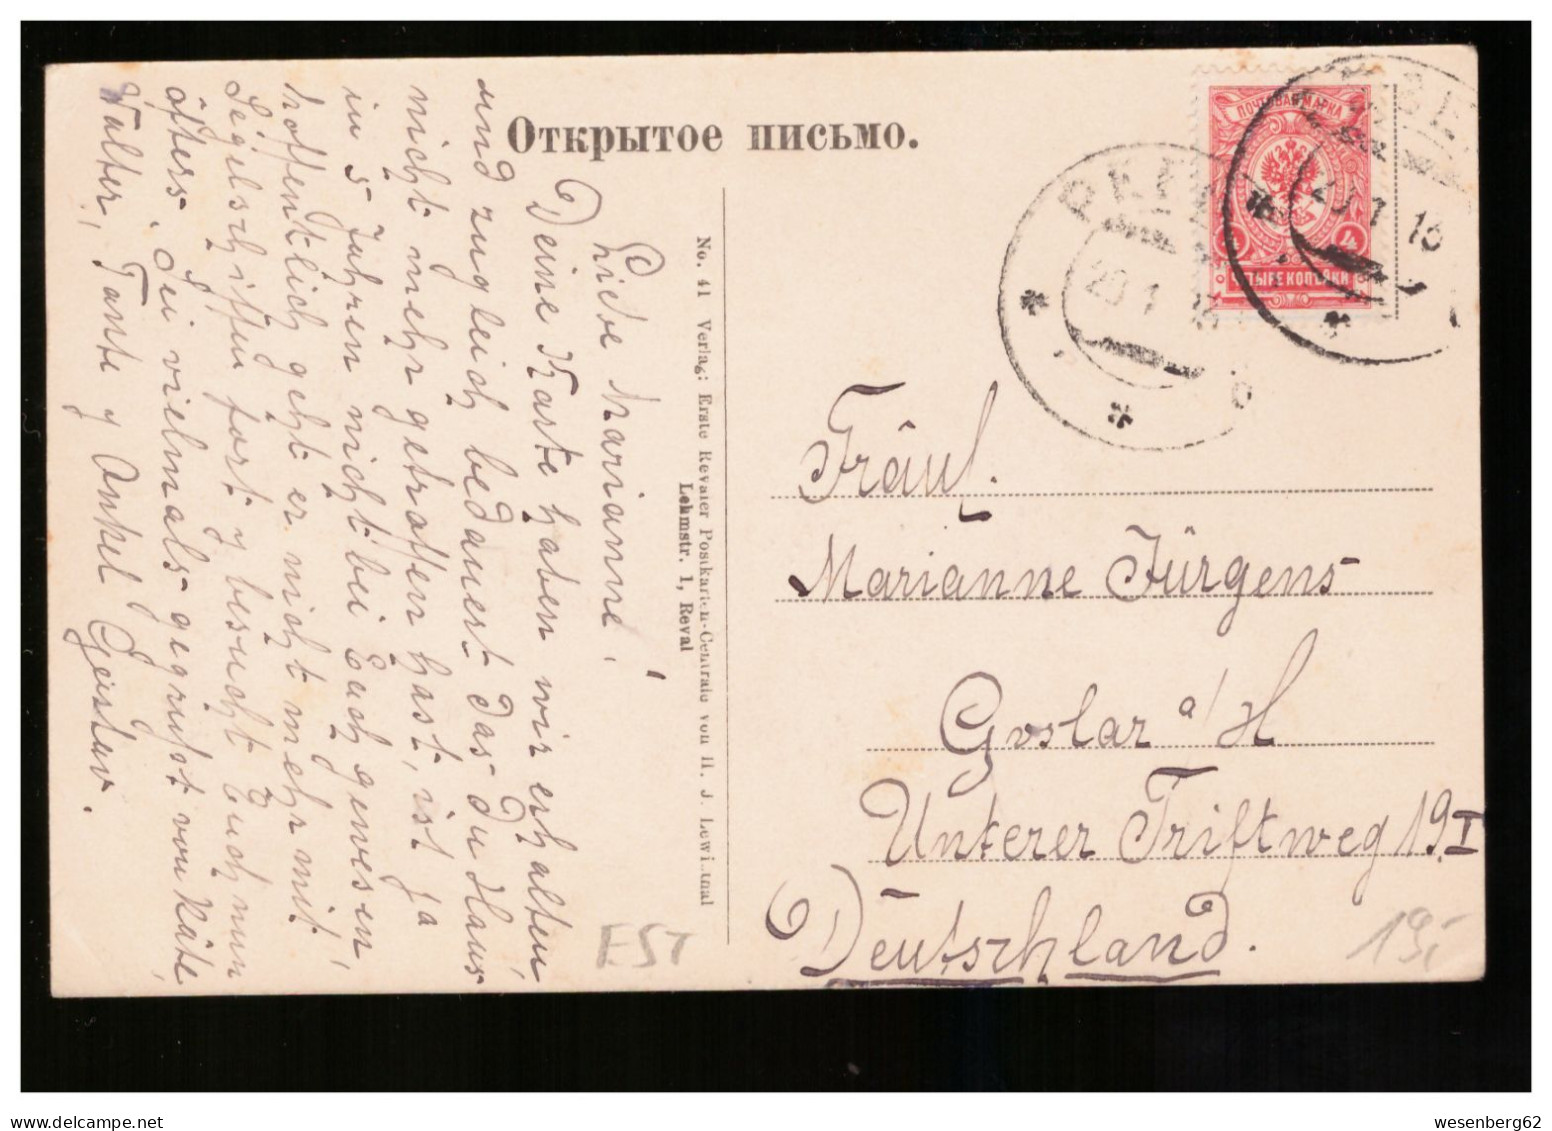 Открытое письмо.
Liebe Marianne!
Deine Karte haben wir erhalten,
und zugleich bedauerst das du Haus
nicht mehr getroffen hast, ist ja
in 5 Jahren nicht bei Euch gewesen,
hoffentlich geht er nicht mehr mit
Segelschiffen fort y besucht Euch nun
öfters. Sei vielmals gegrüßt von Käte,
Walter, Tante y Onkel Gustav.
No. 41 Verlag: Erste Revaler Postkarten-Centrale von H. J. Lewinthal
Lehmstr. 1, Reval
ПОЧТОВАЯ МАРКА
4 4
ЧЕТЫРЕ КОПѢЙКИ
20 1 13
20 1 13
Fräul.
Marianne Jürgens
Goslar a/H
Unterer Triftweg 19 I
Deutschland.
EST
19,-
wesenberg62